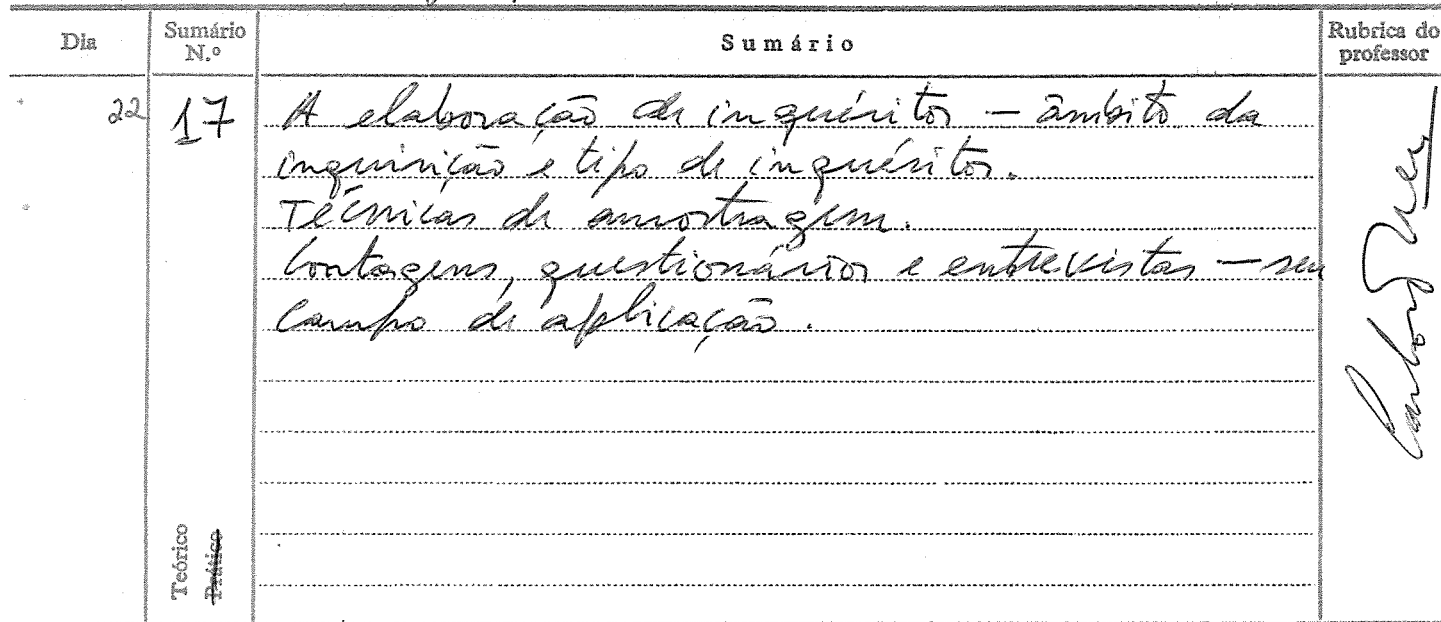 Dia
Sumário N.º
Sumário
Rubrica do professor
22
17
A elaboração de inquéritos — âmbito da
inquirição e tipo de inquéritos.
Técnicas de amostragem.
Contagens, questionários e entrevistas — seu
campo de aplicação.
Teórico
Prático